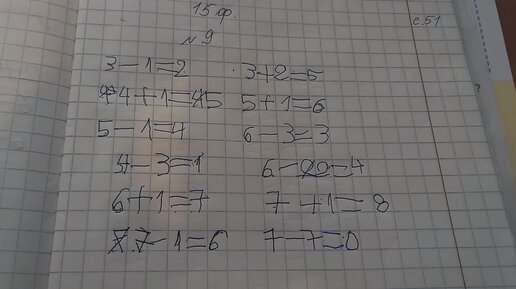 15 ф.
с.51
№ 9
3-1=2 3+2=5
4+1=5 5+1=6
5-1=4 6-3=3
4-3=1 6-2=4
6+1=7 7+1=8
7-1=6 7-7=0